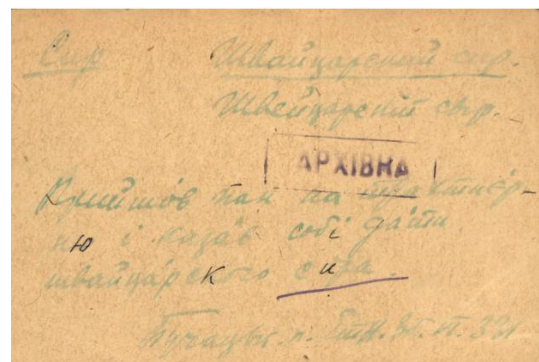 Сир Швайцарский сир.
Швейцарский сыр.
АРХІВНА
Прийшов пан на трахтиєр-
ню і каза́в собі да́ти
швайца́рского си́ра.
Бучацьк. п. Етн. Зб.